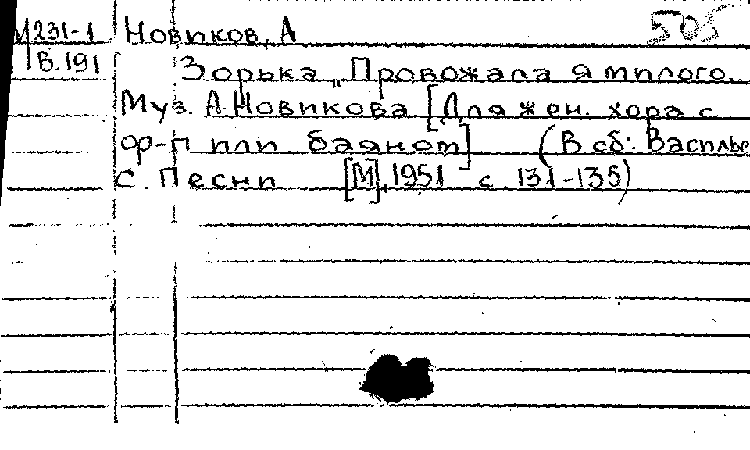 М231-1 Новиков, А 505
В.191 Зорька „Провожала я милого..
Муз. А.Новикова [Для жен. хора с
ф-п или баяном] (В сб: Василье
С. Песни [М], 1951 с 131-135)